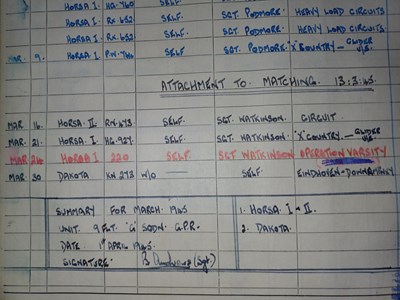 HORSA I. HG.760 SELF. SGT. PODMORE. HEAVY LOAD CIRCUITS
HORSA I. RX.652 SELF. SGT. PODMORE. HEAVY LOAD CIRCUITS
HORSA I. RX.652 SELF. SGT. PODMORE. HEAVY LOAD CIRCUITS
MAR. 9. HORSA I. SELF SGT. PODMORE. "X" COUNTRY – GLIDER
ATTACHMENT TO MATCHING. 13:3:45.
MAR 16. HORSA. II. RN.673. SELF. SGT. WATKINSON. CIRCUIT
MAR. 21. HORSA. I. HG.927. SELF. SGT. WATKINSON. "X" COUNTRY. – GLIDER
MAR 24 HORSA I 220 SELF. SGT WATKINSON OPERATION VARSITY
MAR. 30 DAKOTA KN 273 W/O SELF. EINDHOVEN-
SUMMARY FOR MARCH 1945 1. HORSA I – II.
UNIT. 9 FLT. 'G' SQDN. G.P.R. 2. DAKOTA.
DATE 1ST APRIL 1945.
SIGNATURE. (Sgt.)